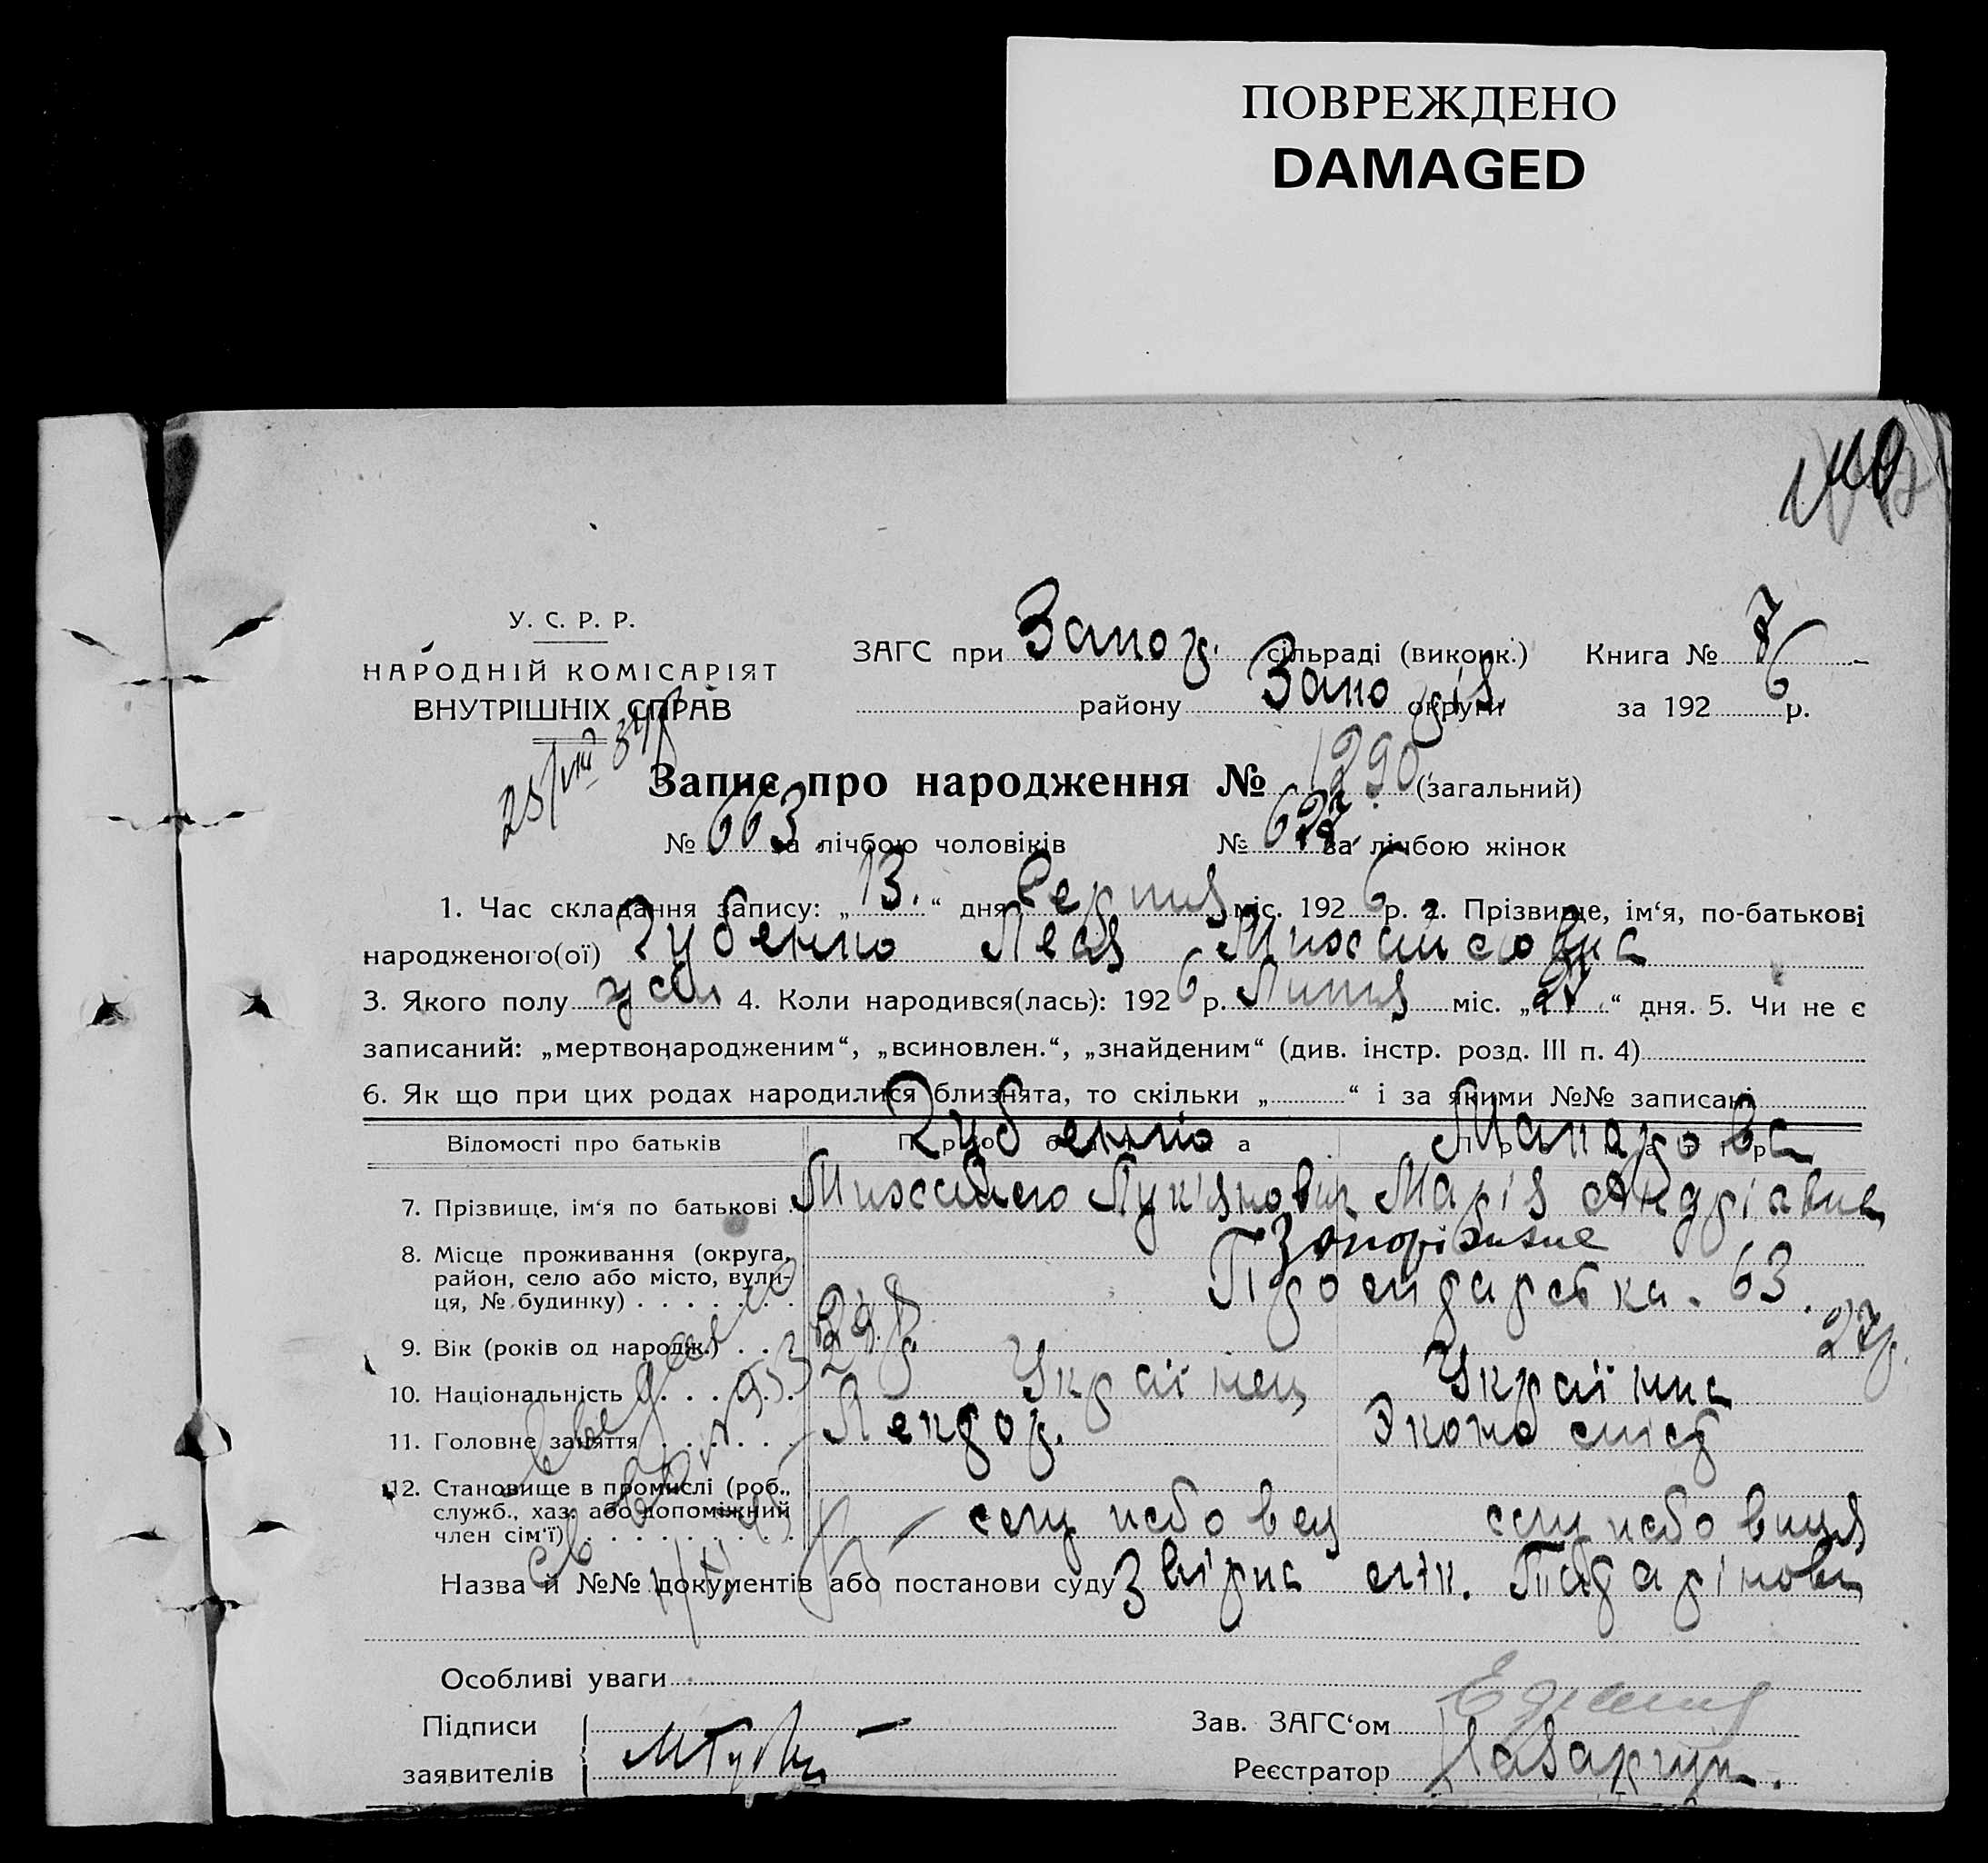 ПОВРЕЖДЕНО
DAMAGED
У. С. Р. Р.
НАРОДНІЙ КОМІСАРІЯТ
ВНУТРІШНІХ СПРАВ
ЗАГС при Запор. сільраді (виконк.) Книга № 7
району Запоріз. округи за 1926 р.
Запис про народження № 1290 (загальний)
№ 663 за лічбою чоловіків № 627 за лічбою жінок
1. Час складання запису: „13.“ дня Серпня міс. 1926 р. 2. Прізвище, ім‘я, по-батькові
народженого(ої) Зубенко Леся Михайловна
3. Якого полу жен 4. Коли народився(лась): 1926 р. Липня міс. „27“ дня. 5. Чи не є
записаний: „мертвонародженим“, „всиновлен.“, „знайденим“ (див. інстр. розд. III п. 4)
6. Як що при цих родах народилися близнята, то скільки „ “ і за якими №№ записані
Відомості про батьків
Зубенко Макарова
7. Прізвище, ім‘я по батькові Михайло Лук'янович Марія Андріавна
8. Місце проживання (округа, район, село або місто, вулиця, № будинку) Запоріжжє
63.
9. Вік (років од народж.) 29 р. 27 р.
10. Національність Українец Українка
11. Головне заняття Лектор. Экономіст
12. Становище в промислі (роб., служб., хаз. або допоміжний член сім‘ї) службовец службовиця
Назва й №№ документів або постанови суду
Особливі уваги
Підписи
заявителів
Зав. ЗАГС‘ом
Реєстратор